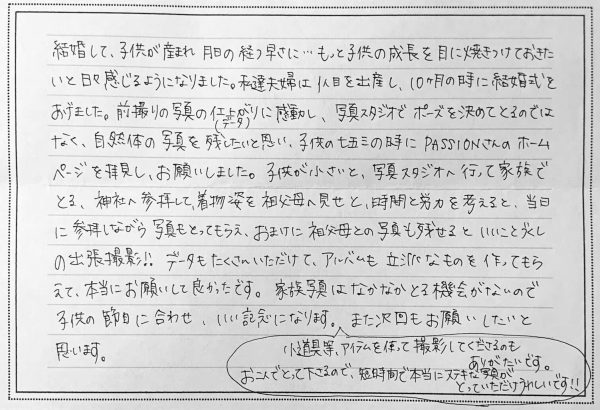 結婚して、子供が産まれ 月日の経つ早さに…もっと子供の成長を目に焼きつけておきた
いと日々感じるようになりました。私達夫婦は1人目を出産し、10ヶ月の時に結婚式を
あげました。前撮りの写真の仕上がりに感動し、写真スタジオでポーズを決めてとるのでは
(データ)
なく、自然体の写真を残したいと思い、子供の七五三の時にPASSIONさんのホーム
ページを拝見し、お願いしました。子供が小さいと、写真スタジオへ行って家族で
とる、神社へ参拝して、着物姿を祖父母へ見せと、時間と労力を考えると、当日
に参拝しながら写真もとってもらえ、おまけに祖父母との写真も残せると いいことづくし
の出張撮影!! データもたくさんいただけて、アルバムも立派なものを作ってもら
えて、本当にお願いして良かったです。家族写真はなかなかとる機会がないので
子供の節目に合わせ、いい記念になります。また次回もお願いしたいと
思います。
小道具等、アイテムを使って撮影してくださるのも
ありがたいです。
お二人でとって下さるので、短時間で本当にステキな写真が
とっていただけうれしいです!!